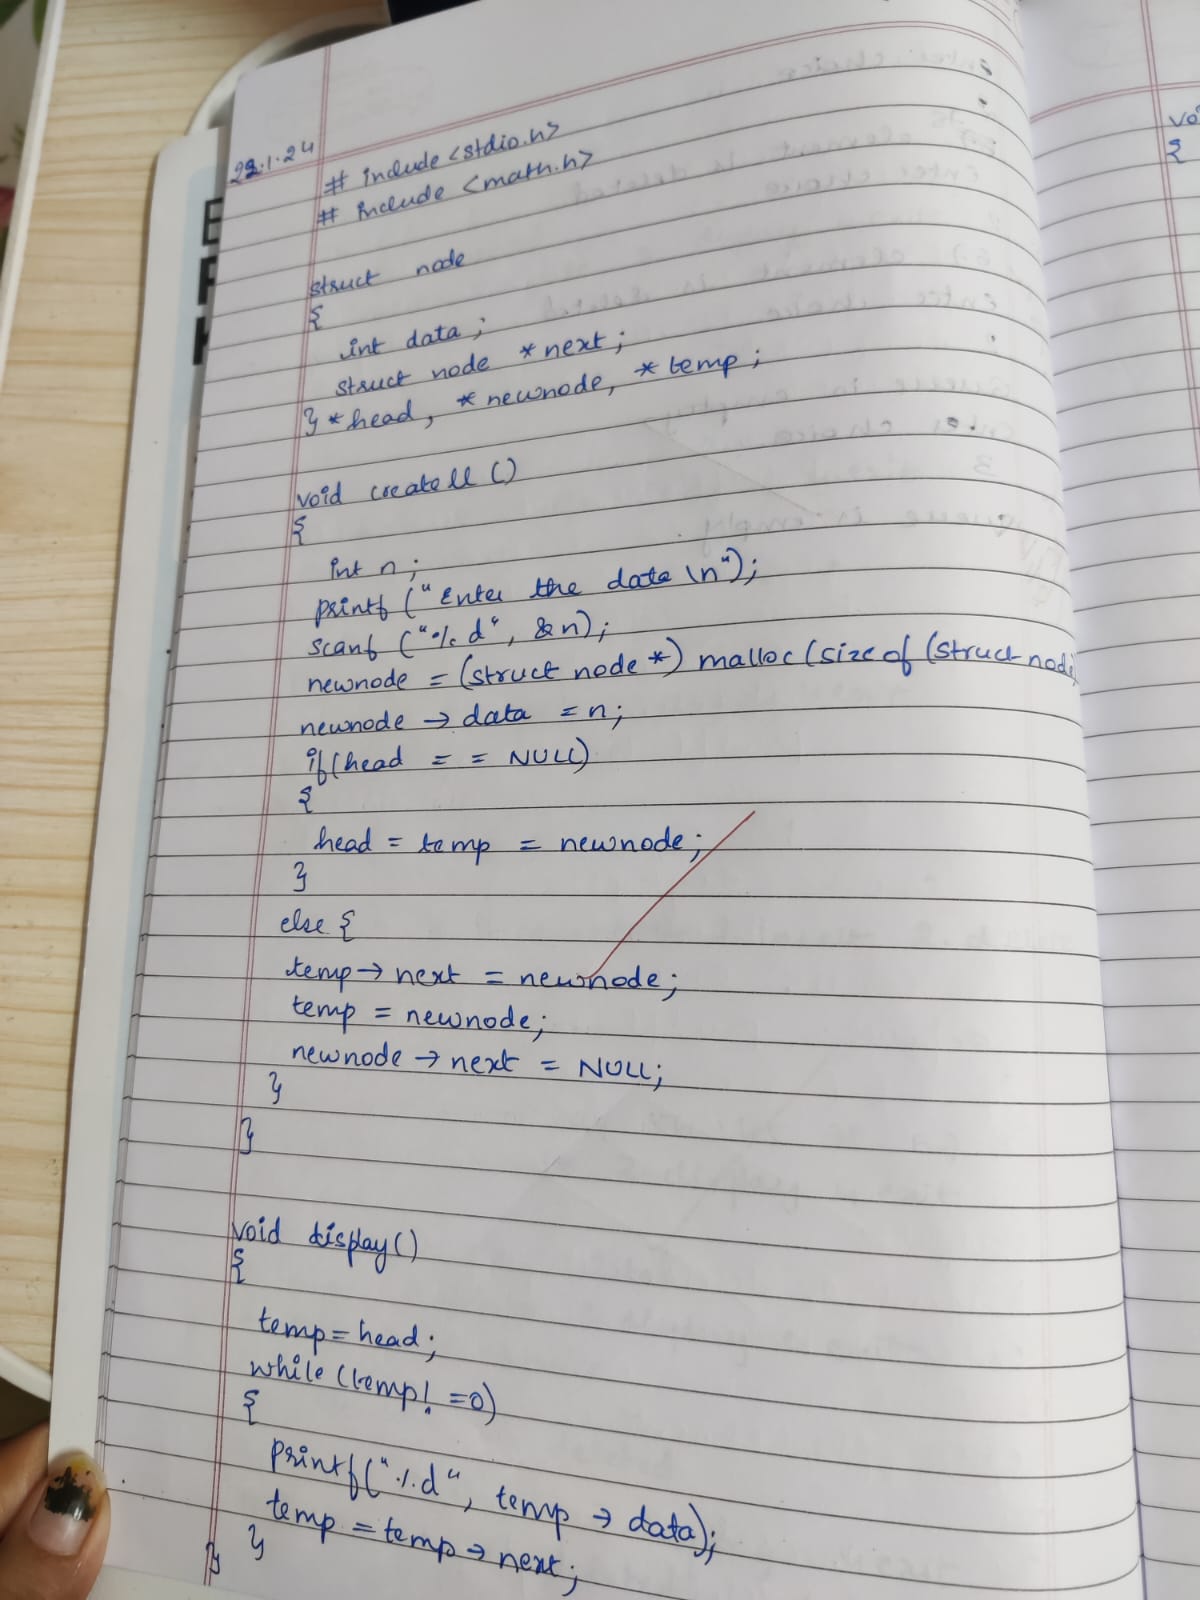 22.1.24
# include <stdio.h>
# include <math.h>
struct node
{
int data;
struct node *next;
} *head, *newnode, *temp;
void createll ()
{
int n;
printf ("Enter the data \n");
scanf ("%d", &n);
newnode = (struct node *) malloc (size of (struct node)
newnode → data = n;
if (head = = NULL)
{
head = temp = newnode;
}
else {
temp → next = newnode;
temp = newnode;
newnode → next = NULL;
}
}
void display ()
{
temp = head;
while (temp! =0)
{
printf ("%d", temp → data);
temp = temp → next;
}
}